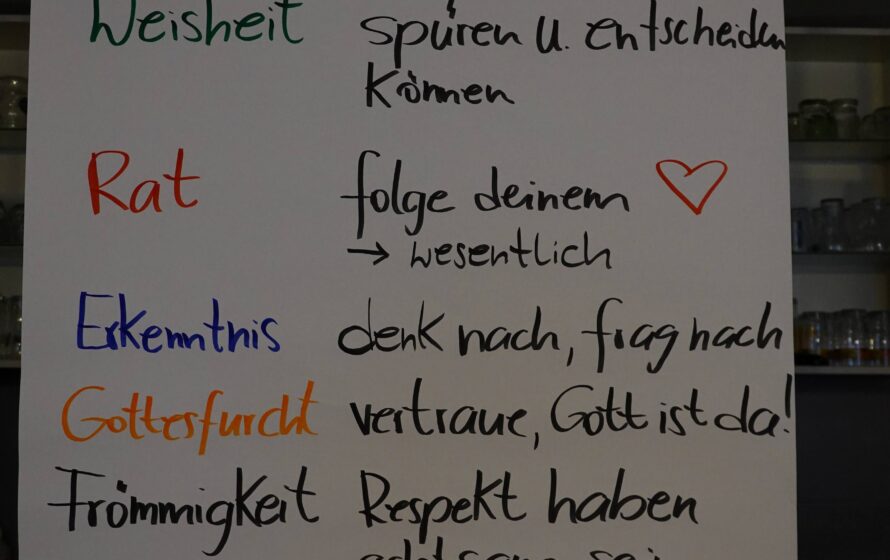 Weisheit spüren u. entscheiden
können
Rat folge deinem ♡
→ wesentlich
Erkenntnis denk nach, frag nach
Gottesfurcht vertraue, Gott ist da!
Frömmigkeit Respekt haben